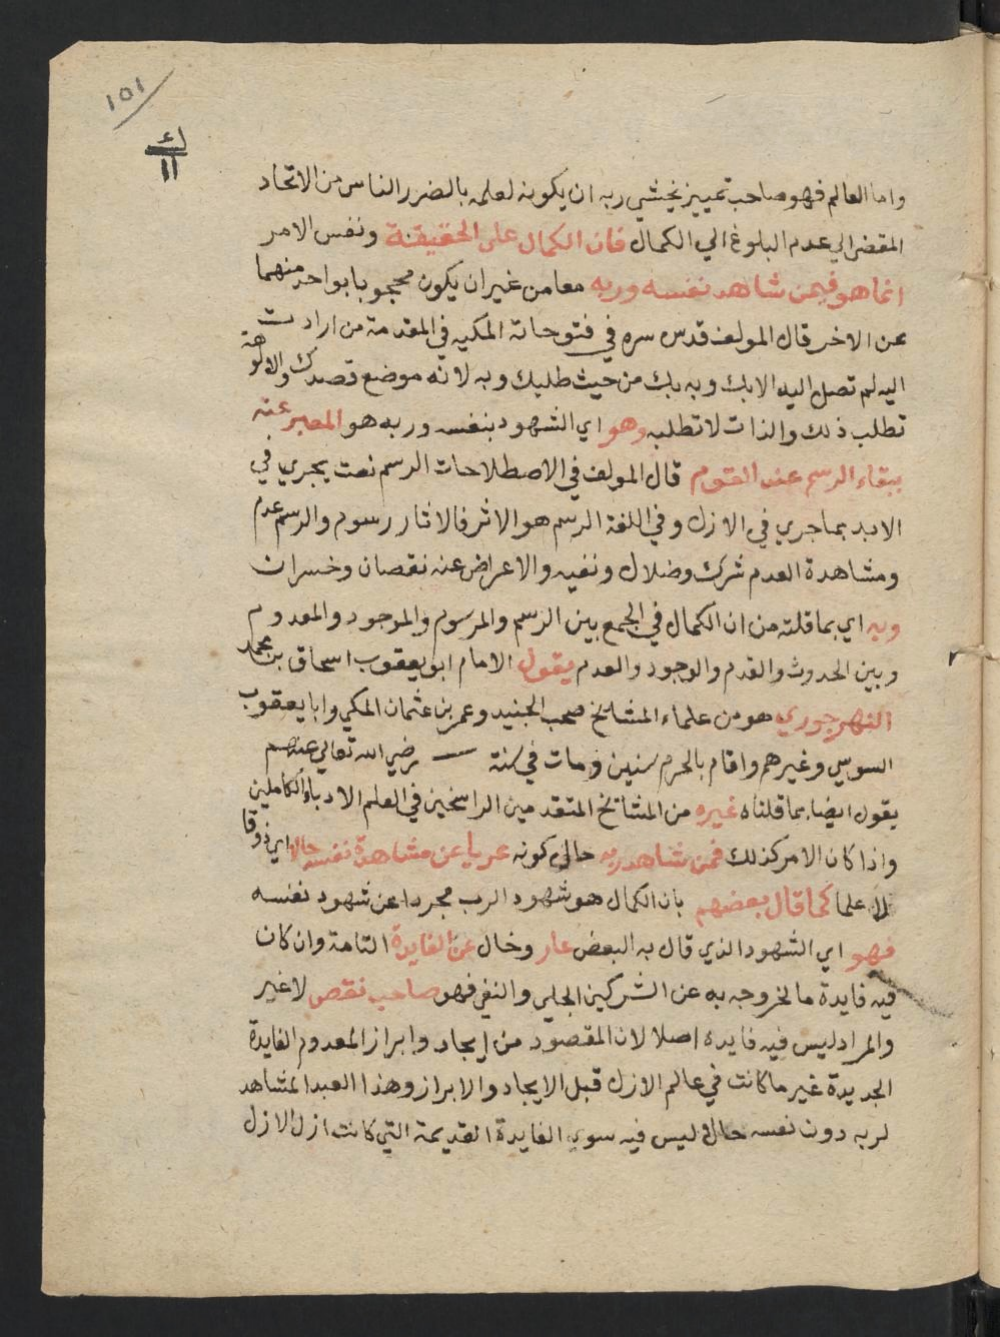 101
ك
11
واما العالم فهو صاحب تمييز يخشى ربه ان يكونه لعلمه بالضرر الناس من الاتحاد
المفضي الي عدم البلوغ الي الكمال فان الكمال على الحقيقة ونفس الامر
انما هو فيمن شاهد نفسه وربه معا من غير ان يكون محجوبا بواحد منهما
عن الاخر قال المولف قدس سره في فتوحاته المكيه في المقدمة من اردت
اليه لم تصل اليه الا بك وبه بك من حيث طلبك وبه لانه موضع قصدك والالوهة
تطلب ذلك والذات لا تطلبه وهو اي الشهود بنفسه وربه هو المعبر عنه
ببقاء الرسم عند القوم قال المولف في الاصطلاحات الرسم نعت يجري في
الابد بما جري في الازل وفي اللغة الرسم هو الاثر فالاثار رسوم والرسم عدم
ومشاهدة العدم شرك وضلال ونفيه والاعراض عنه نقصان وخسران
وبه اي بما قلته من ان الكمال في الجمع بين الرسم والمرسوم والموجود والمعدوم
وبين الحدوث والقدم والوجود والعدم يقول الامام ابو يعقوب اسحاق بن محمد
النهرجوري هو من علماء المشايخ صحب الجنيد وعمر بن عثمان المكي وابا يعقوب
السوسي وغيرهم واقام بالحرم سنين ومات في سنة رضي الله تعالي عنهم
يقول ايضا بما قلناه غيره من المشايخ المتقدمين الراسخين في العلم الادباء الكاملين
واذا كان الامر كذلك فمن شاهد ربه حال كونه عريا عن مشاهدة نفسه حالا اي ذوقا
لا علما كما قال بعضهم بان الكمال هو شهود الرب مجردا عن شهود نفسه
فهو اي الشهود الذي قال به البعض عار وخال عن الفايدة التامة وان كان
فيه فايدة ما لخروجه به عن الشركين الجلي والنفي فهو صاحب نقص لا غير
والمراد ليس فيه فايدة اصلا لان المقصود من ايجاد وابراز المعدوم الفايدة
الجديدة غير ما كانت في عالم الازل قبل الايجاد والابراز وهذا العبد المشاهد
لربه دون نفسه حالا ليس فيه سوي الفايدة القديمة التي كانت ازل الازل